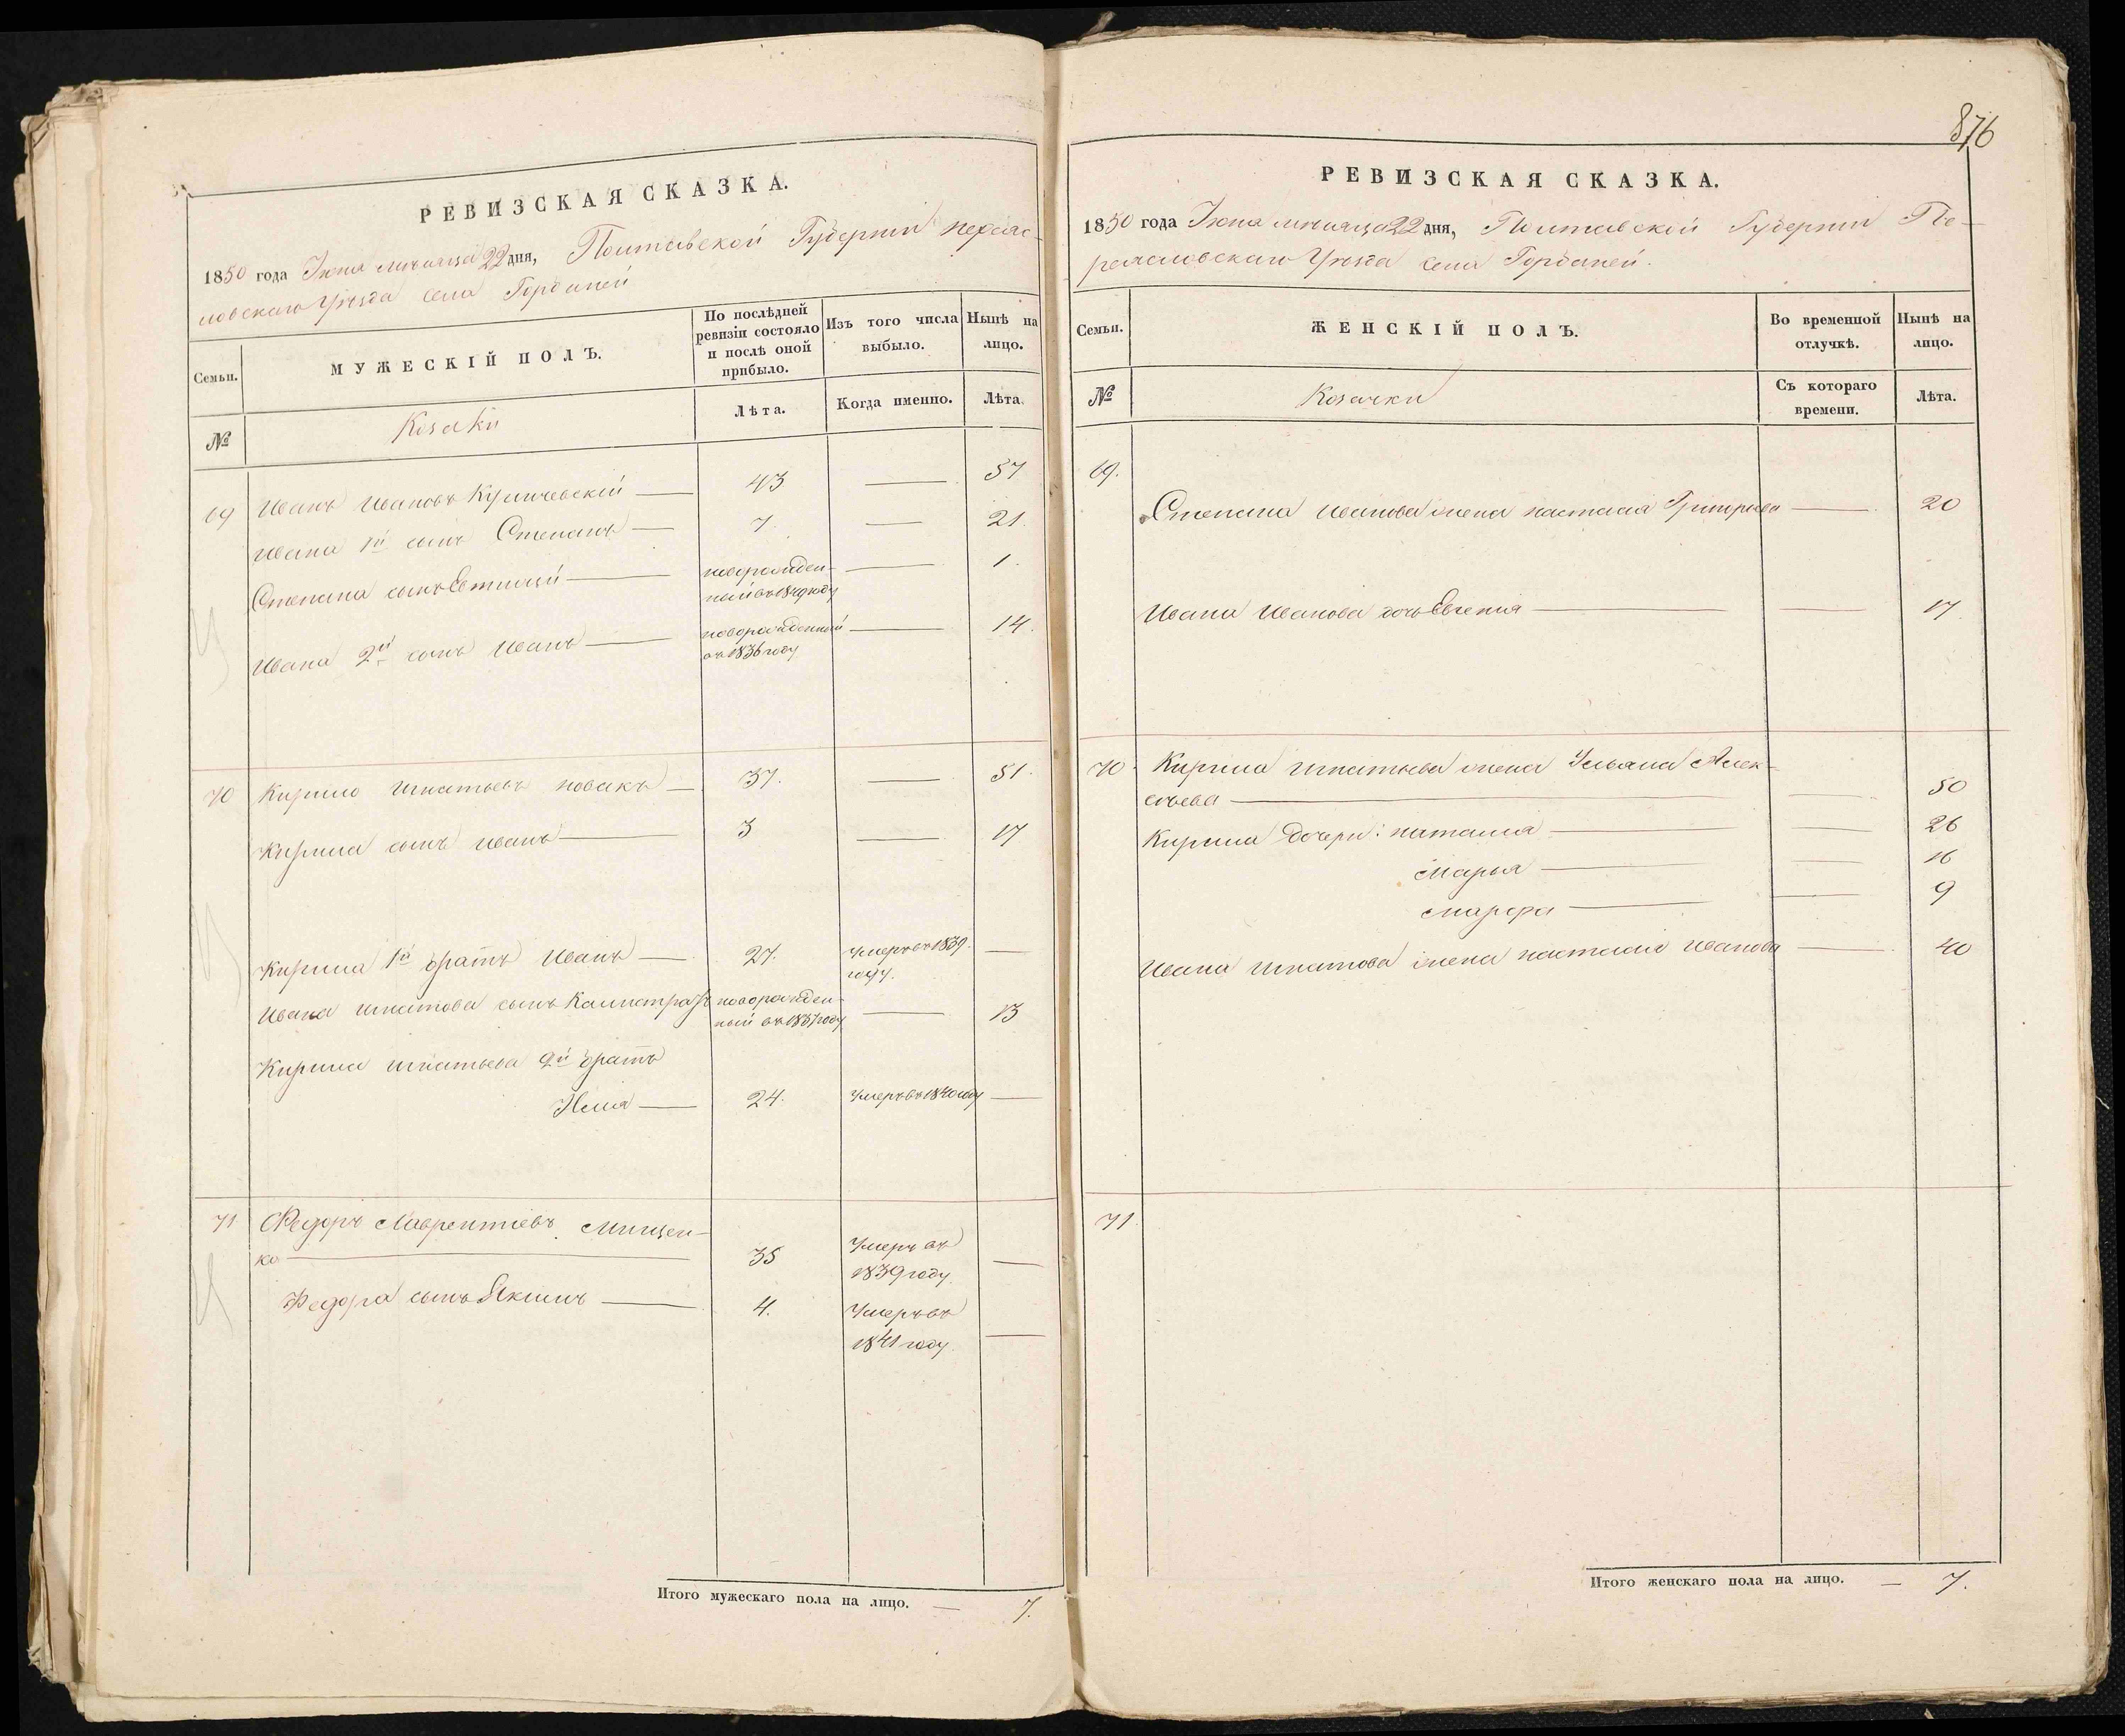 РЕВИЗСКАЯ СКАЗКА.
1850 года Июня месяца 22 дня, Полтавской Губернии Переяс-
ловскаго Уѣзда села Горбаней
Семьи.
МУЖЕСКІЙ ПОЛЪ.
По послѣдней ревизіи состояло и послѣ оной прибыло.
Изъ того числа выбыло.
Нынѣ на лицо.
№
Козаки
Лѣта.
Когда именно.
Лѣта.
69 Иванъ Ивановъ 43 — 57
Ивана 1й сынъ Степанъ — 7. — 21.
Степана сынъ Евтихій — новорожден-
ный въ 1849 году — 1.
Ивана 2й сынъ Иванъ — новорожденный
въ 1836 году — 14.
70 Кирило Игнатьевъ Новакъ — 37. — 51.
Кирила сынъ Иванъ — 3 — 17
Кирила 1й братъ Иванъ — 27. Умеръ въ 1839
году. —
Ивана Игнатова сынъ Калистратъ новорожден-
ный въ 1837 году — 13
Кирила Игнатьева 2й братъ
Илья — 24. Умеръ въ 1840 году —
71 Федоръ Лаврентіевъ Мищен-
ко — 35 Умеръ въ
1839 году —
Федора сынъ Якимъ — 4. Умеръ въ
1841 году —
Итого мужескаго пола на лицо. — 7.
876
РЕВИЗСКАЯ СКАЗКА.
1850 года Июня месяца 22 дня, Полтавской Губернии Пе-
реяславскаго Уѣзда села Горбаней.
Семьи.
ЖЕНСКІЙ ПОЛЪ.
Во временной отлучкѣ.
Нынѣ на лицо.
№
Козачки
Съ котораго времени.
Лѣта.
69.
Степана Иванова жена Настасия Григорьева — 20
Ивана Иванова дочь Евгения — — 17.
70. Кирила Игнатьева жена Ульяна Алек-
сѣева — — 50
Кирила дочери: Наталия — — 26
Марья — — 16
Марфа — — 9
Ивана Игнатова жена Настасия Иванова — 40
71.
Итого женскаго пола на лицо. — 7.